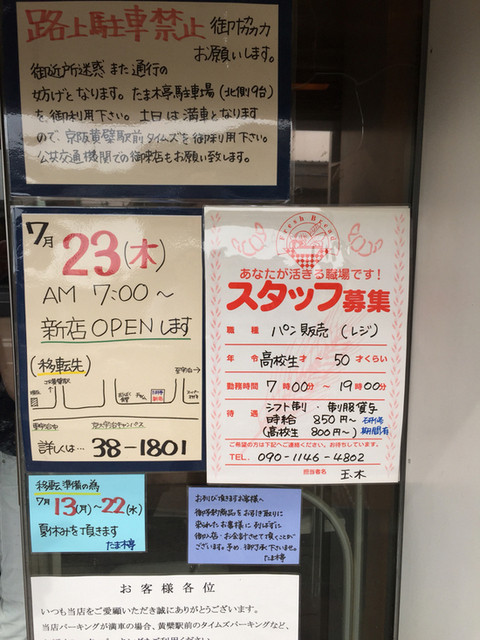 路上駐車禁止 御協力
お願いします。
御近所迷惑また通行の
妨げとなります。たま木亭駐車場(北側9台)
を御利用下さい。土日は満車となります
ので、京阪黄檗駅前タイムズを御利用下さい。
公共交通機関での御来店もお願い致します。
7月
23(木)
AM 7:00〜
新店OPENします
(移転先)
詳しくは… 38-1801
Fresh Bread
あなたが活きる職場です!
スタッフ募集
職種 パン販売(レジ)
年令 高校生才〜50才くらい
勤務時間 7時00分〜19時00分
待遇 シフト制・制服貸与
時給 850円〜 研修
(高校生 800円〜) 期間有
ご希望の方は下記へご連絡ください。お待ちしています。
TEL. 090-1146-4802
担当者名 玉木
移転準備の為
7月13(月)〜22(水)
夏休みを頂きます
たま木亭
お並び頂きますお客様へ
御予約商品をお引き取りに
来られたお客様に列ばずに
御入店・お会計させて頂くことが
ございます。予め御了承下さいませ。
たま木亭
お客様各位
いつも当店をご愛顧いただき誠にありがとうございます。
当店パーキングが満車の場合、黄檗駅前のタイムズパーキングなど、